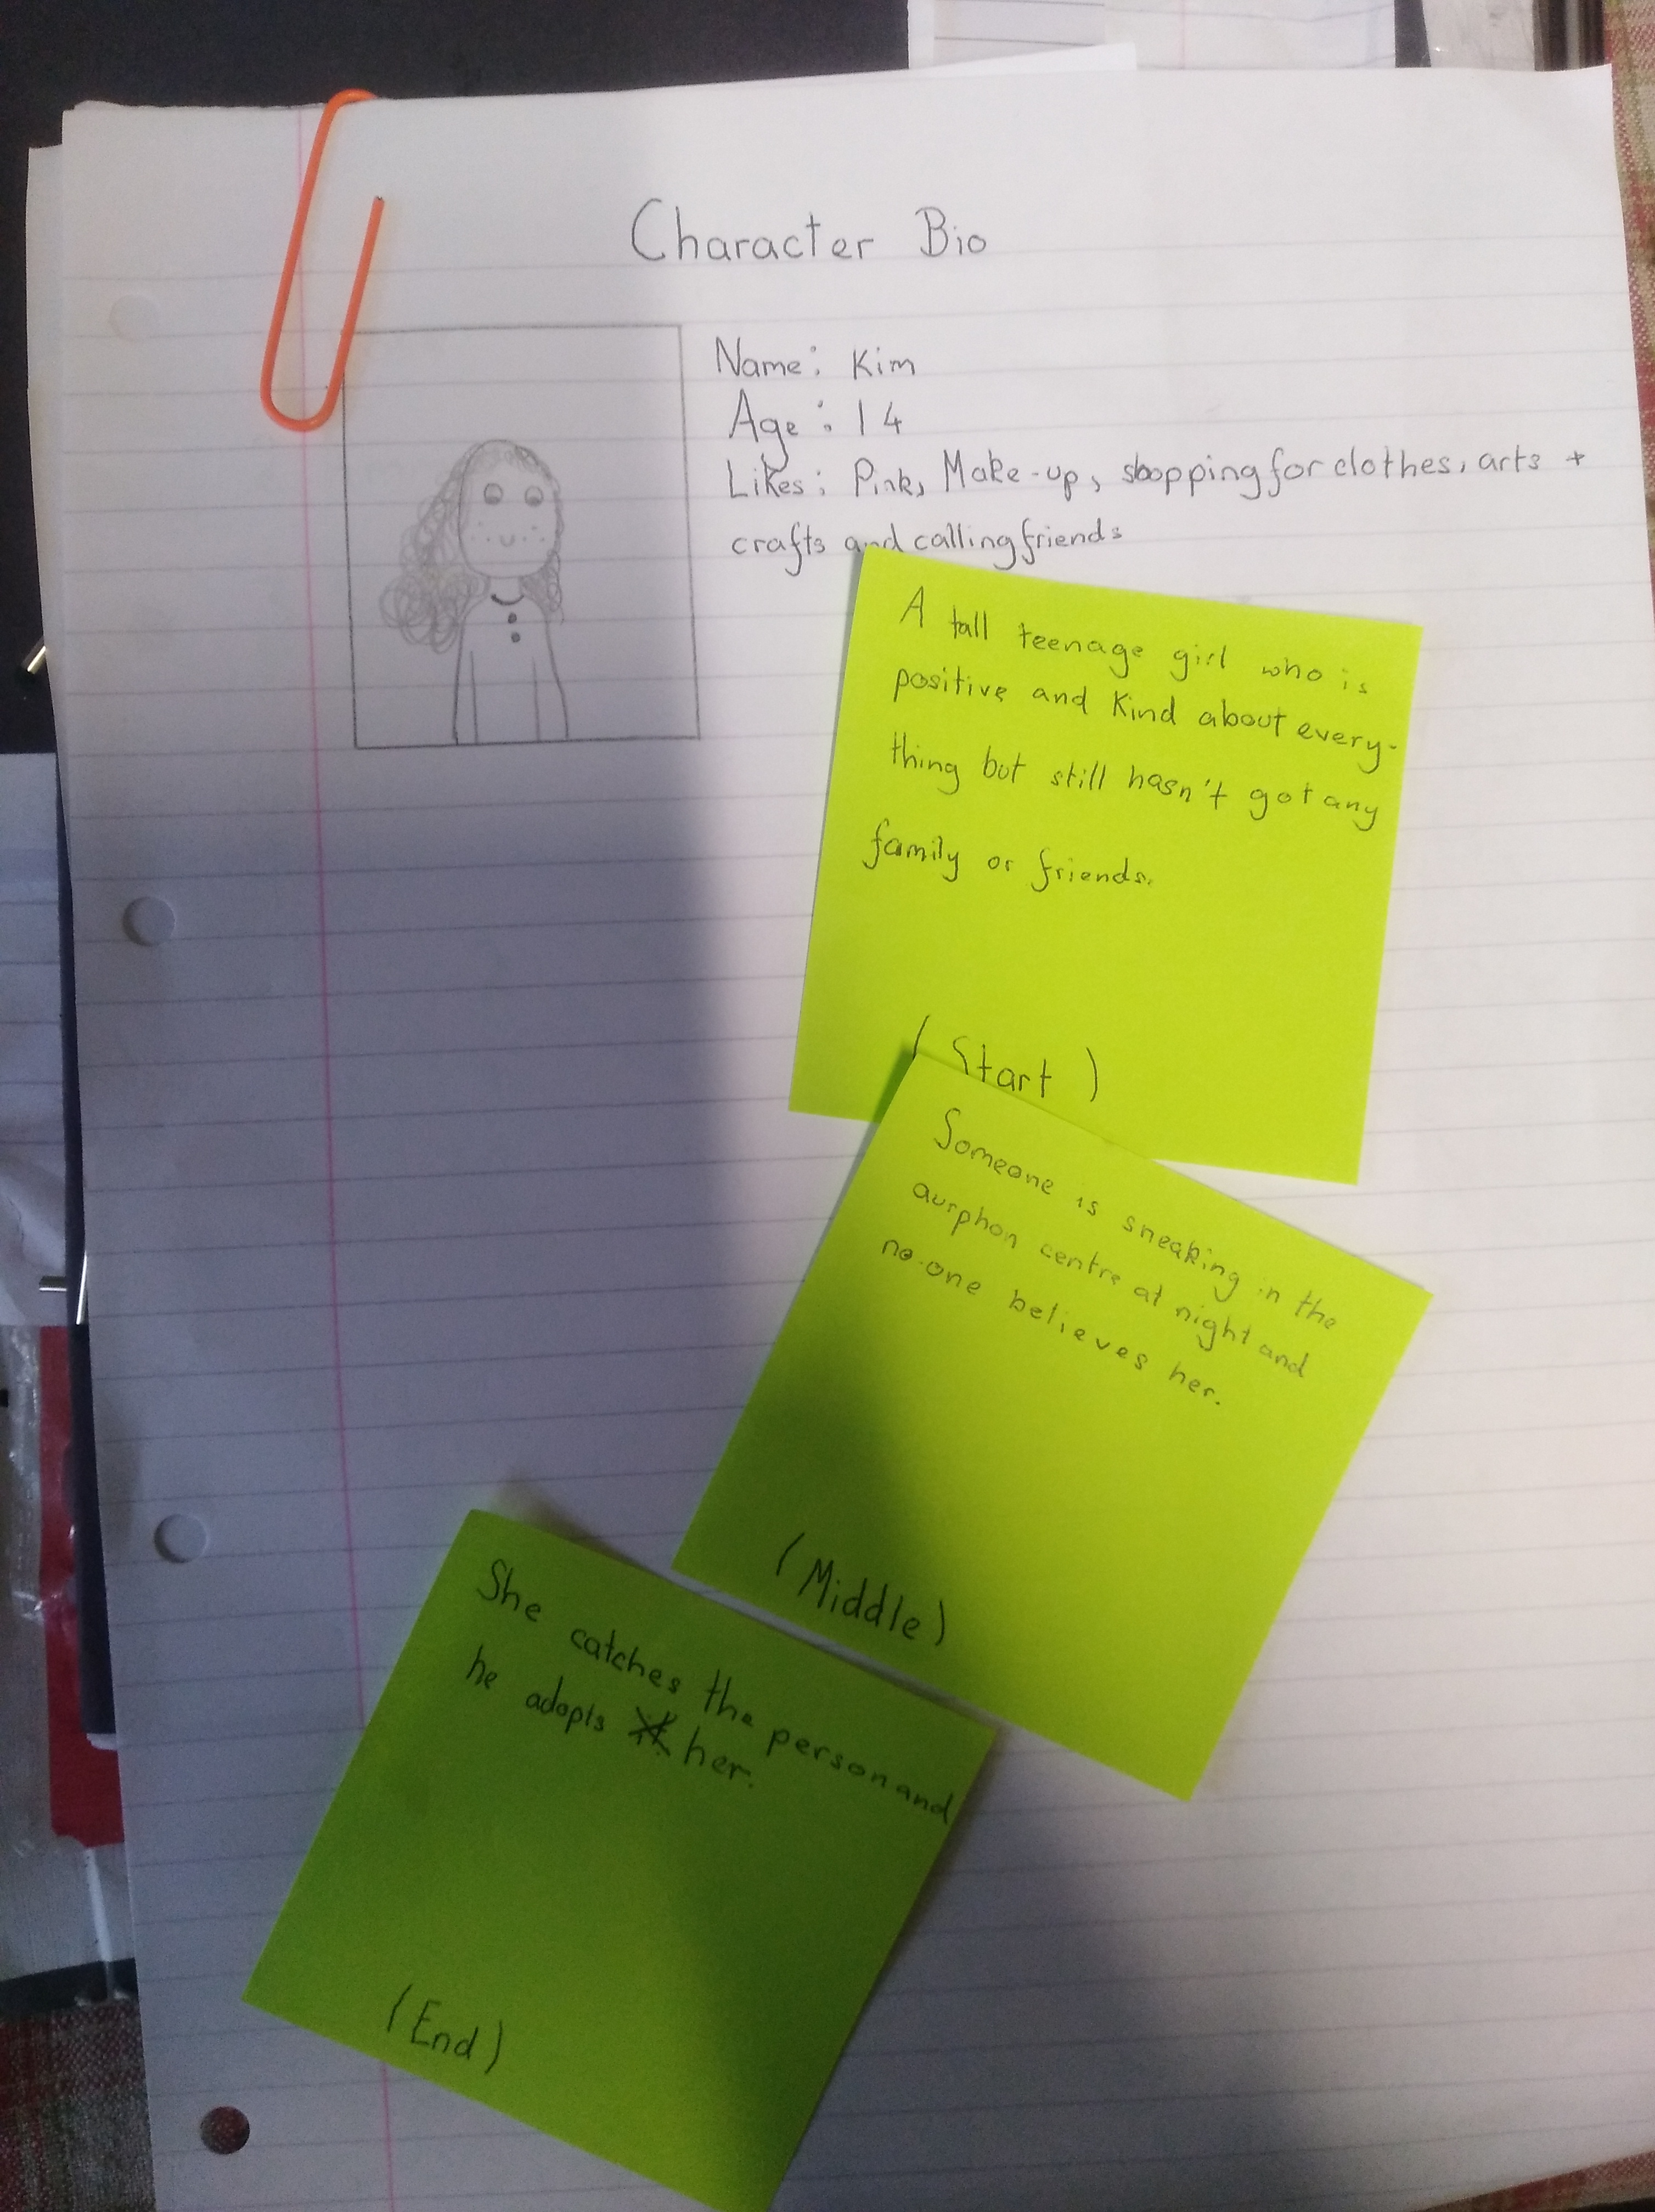 Character Bio
Name: Kim
Age: 14
Likes: Pink, Make-up, shopping for clothes, arts +
crafts and calling friends
A tall teenage girl who is
positive and kind about every-
thing but still hasn't got any
family or friends.
(Start)
Someone is sneaking in the
aurphon centre at night and
no-one believes her.
(Middle)
She catches the person and
he adopts her.
(End)